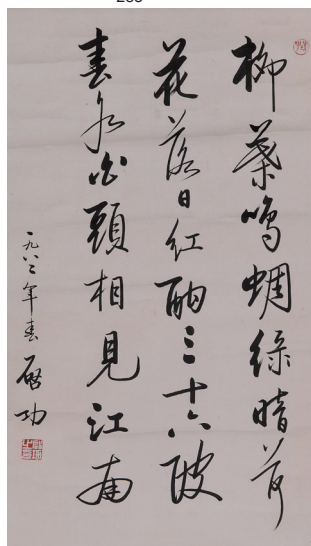 柳葉鳴蜩綠暗荷
花落日紅酣三十六陂
春水白頭相見江南
一九八二年春 啓功